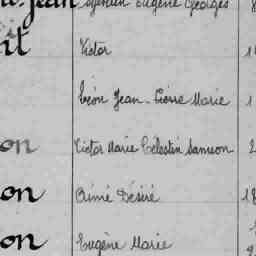 Jean Sylvain Eugène Georges
Victor
Léon Jean-Pierre Marie 1
on Victor Marie Célestin Samson 2
on Aimé Désiré 18
on Eugène Marie